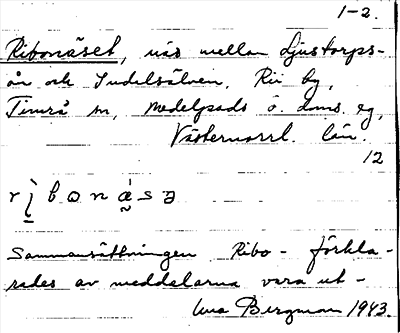 1-2.
Ribonäset, näs mellan Ljustorps-
ån och Indalsälven, Rii by,
Timrå sn, Medelpads ö. doms. eg,
Västernorrl. län.
12
rì̱bonásə
Sammansättningen Ribo- förkla-
rades av meddelarna vara ut-
Una Bergman 1943.